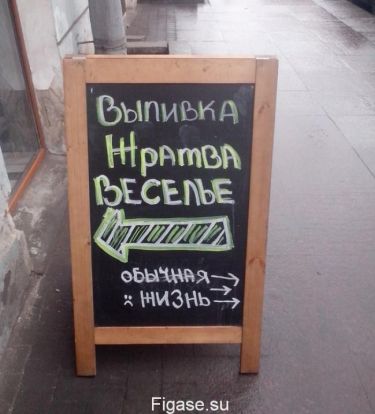 Выпивка
Жратва
Веселье
обычная →
:( жизнь →
Figase.su